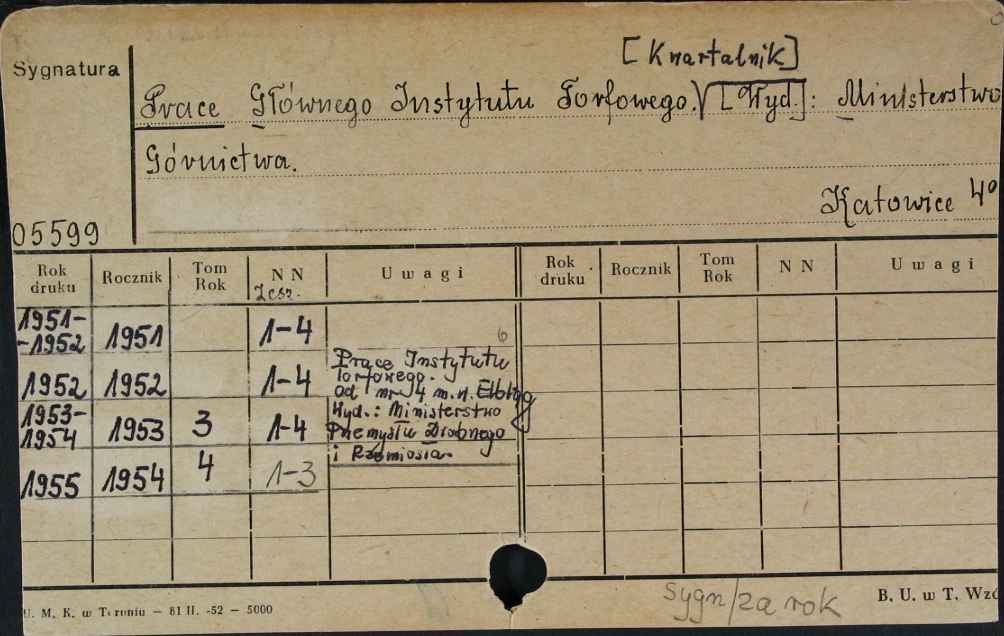 [Kwartalnik]
Sygnatura
Prace Głównego Instytutu Torfowego. [Wyd.]: Ministerstwo
Górnictwa.
Katowice 4°
05599
Rok druku Rocznik Tom Rok NN Zesz. Uwagi Rok druku Rocznik Tom Rok NN Uwagi
1951-
-1952 1951 1-4 6
1952 1952 1-4 Prace Instytutu
Torfowego.
od nr 4 m.w. Elbląg
1953-
1954 1953 3 1-4 Wyd.: Ministerstwo
Przemysłu Drobnego
i Rzemiosła
1955 1954 4 1-3
Sygn/za rok
U. M. K. w Toruniu — 81 II. -52 — 5000
B. U. w T. Wzó